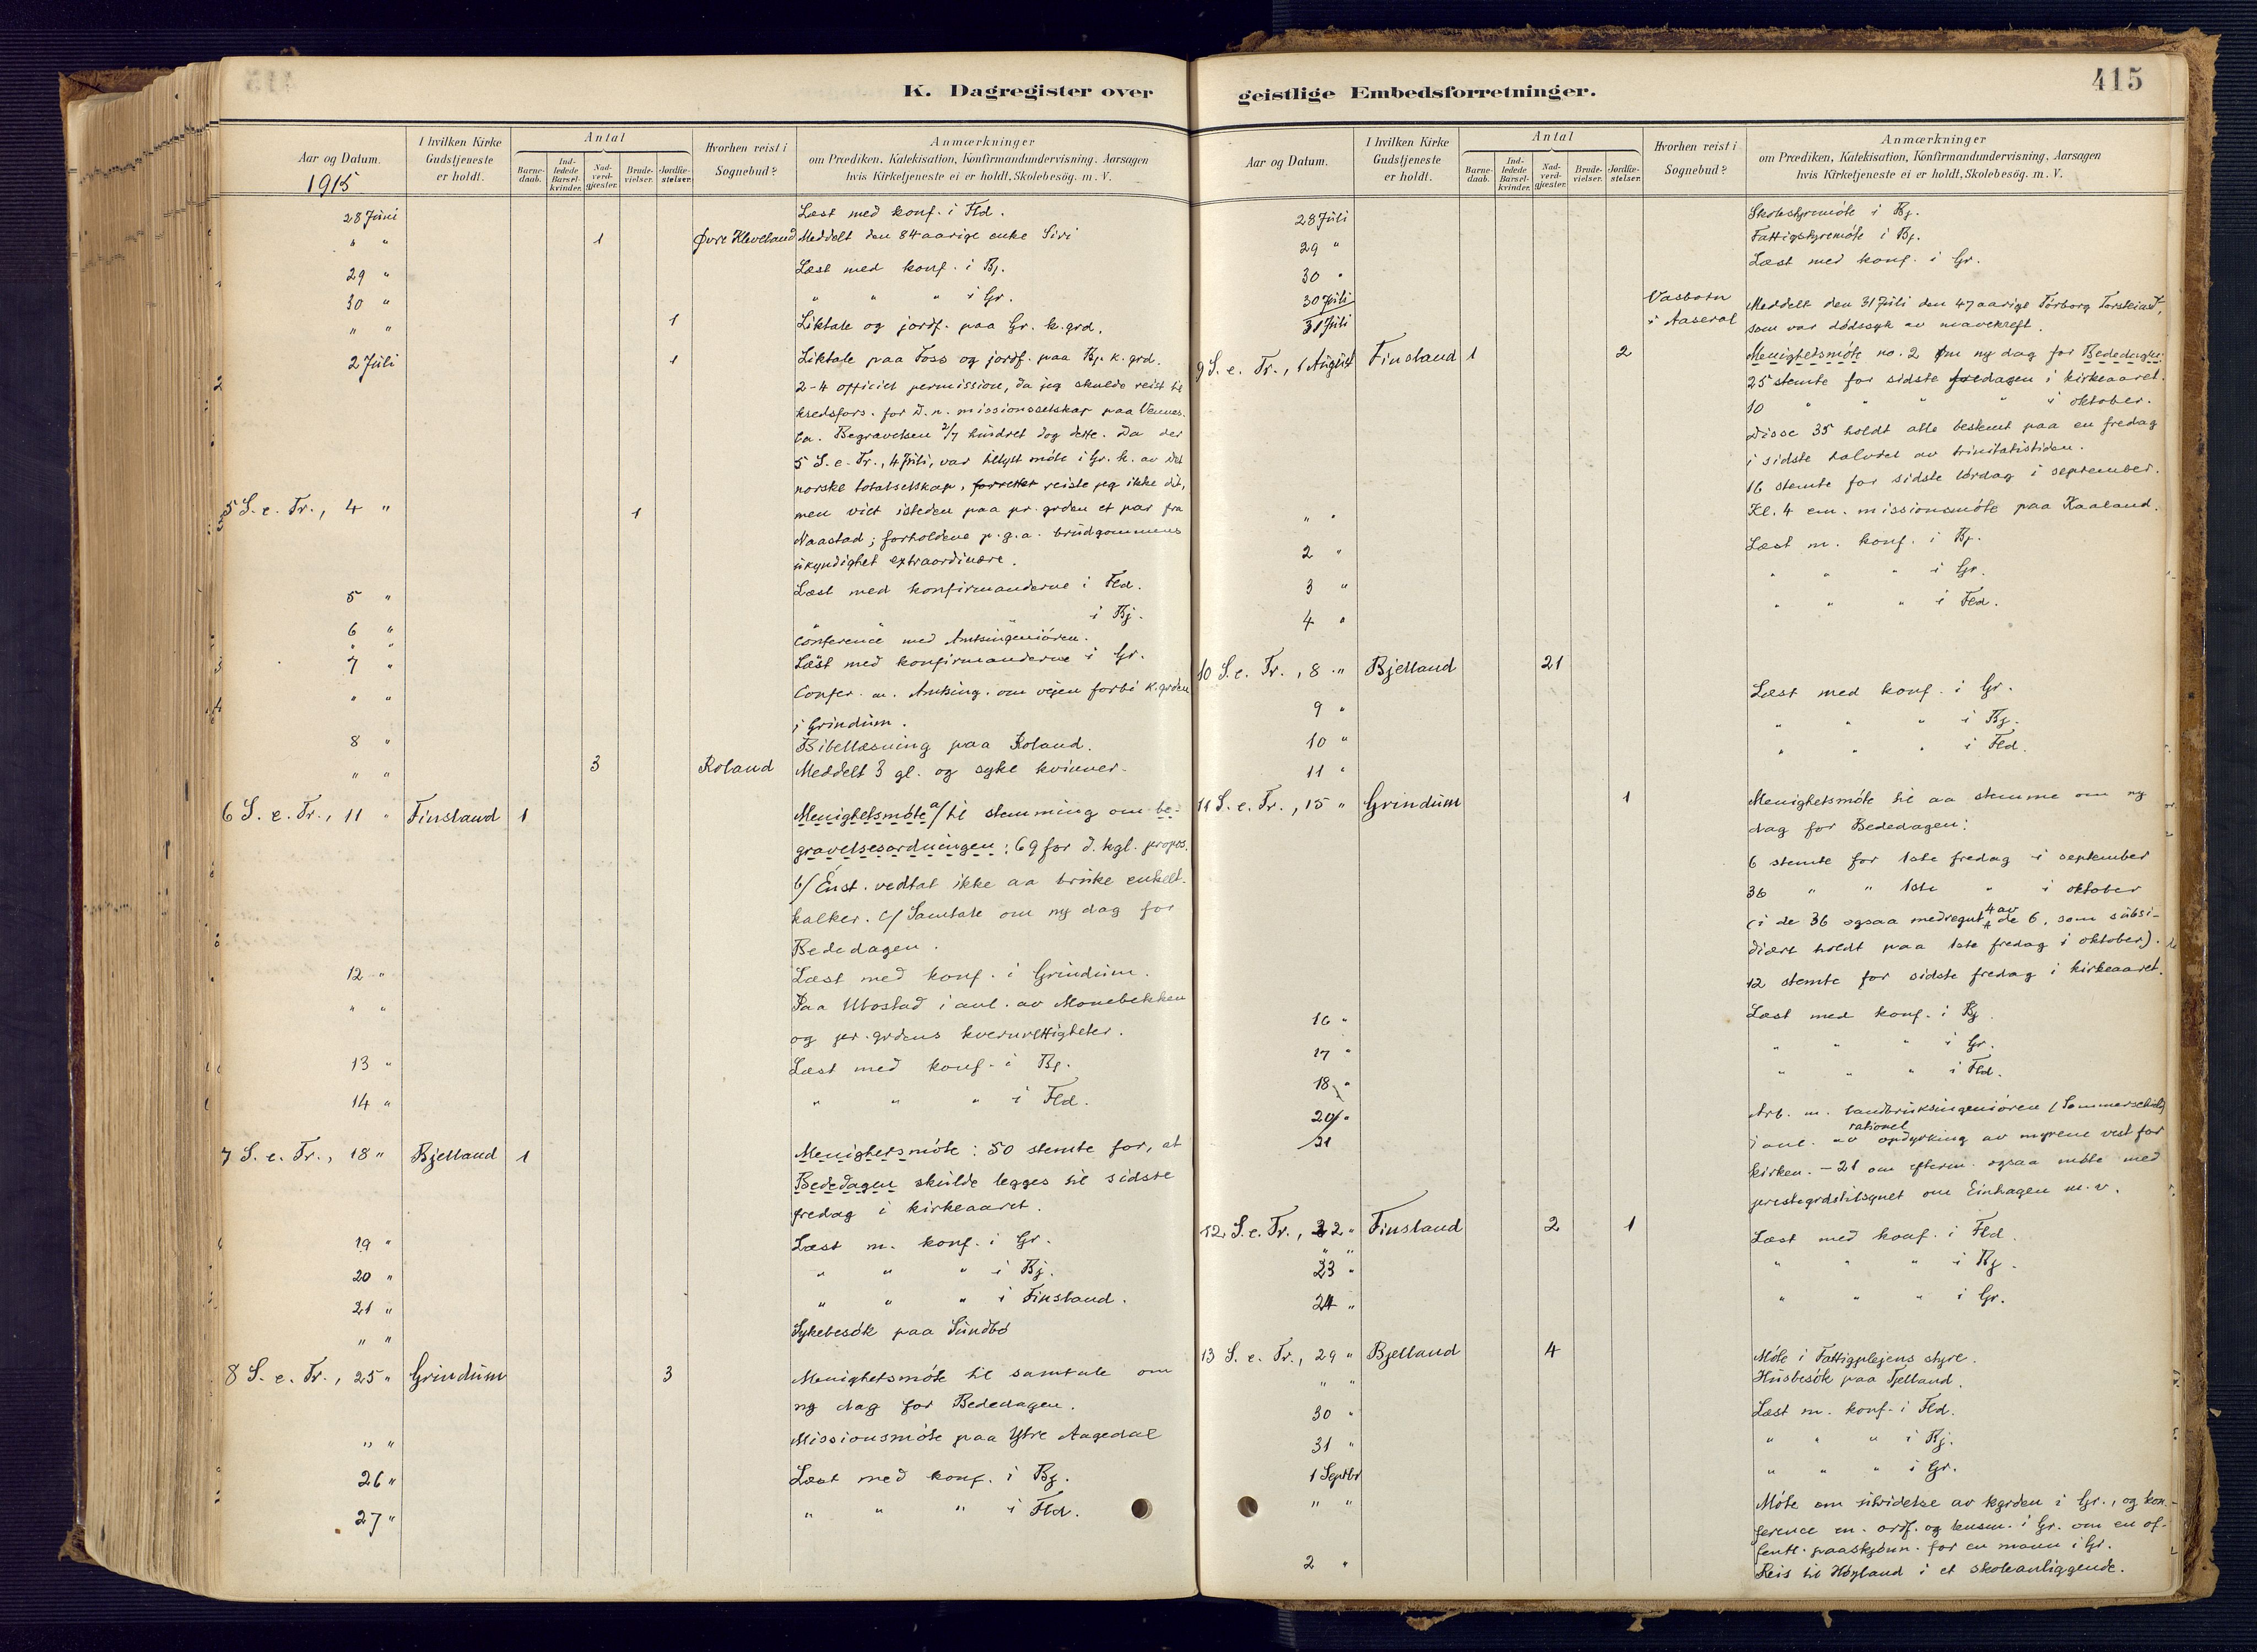 K. Dagregister over
Aar og Datum.
1915
I hvilken Kirke Gudstjeneste er holdt.
Antal
Barne-daab.
Ind-ledede Barsel-kvinder.
Nad-verd-gjæster.
Brude-vielser.
Jordfæ-stelser.
Hvorhen reist i Sognebud?
Anmærkninger
om Prædiken, Katekisation, Konfirmandundervisning. Aarsagen
hvis Kirketjeneste ei er holdt, Skolebesög. m. V.
28 Juni Læst med konf. i Fld.
" " 1 Øvre Kleveland Meddelt den 84 aarige enke Siri
29 " Læst med konf. i Bj.
30 " " " " i Gr.
" " 1 Liktale og jordf. paa Gr. k.grd.
2 Juli 1 Liktale paa Foss og jordf. paa Bj. k. grd.
2-4 officiel permission, da jeg skulde reist til
kredsfors. for D. n. missionsselskap paa Vennes-
la. Begravelsen 2/7 hindret dog dette. Da der
5 S. e. Tr., 4 Juli, var tillyst møte i Gr. k. av det
norske totalselskap, reiste jeg ikke dit,
5 S. e. Tr., 4 " 1 men viet isteden paa pr. grden et par fra
Naastad; forholdene p. g. a. brudgommens
ukyndighet extraordinære.
5 " Læst med konfirmanderne i Fld.
6 " " " i Bj.
" " Conference med Amtsingeniøren.
7 " Læst med konfirmanderne i Gr.
" " Confer. m. Amtsing. om vejen forbi k.grden
i Grindum.
8 " Bibellæsning paa Roland.
" " 3 Roland Meddelt 3 gl. og syke kvinner.
6 S. e. Tr., 11 " Finsland 1 Menighetsmøte a/ til stemming om be-
gravelsesordningen: 69 for d. kgl. propos.
b/ Enst. vedtat ikke aa bruke enkelt-
kalker. c/ Samtale om ny dag for
Bededagen.
12 " Læst med konf. i Grindum.
" " Paa Ubostad i anl. av Monebekken
og pr. grdens kvernrettigheter.
13 " Læst med konf. i Bj.
14 " " " " i Fld.
7 S. e. Tr., 18 " Bjelland 1 Menighetsmøte: 50 stemte for, at
Bededagen skulde legges til sidste
fredag i kirkeaaret.
19 " Læst m. konf. i Gr.
20 " " " " i Bj.
21 " " " " i Finsland.
" " Sykebesøk paa Sundbø
8 S. e. Tr., 25 " Grindum 3 Menighetsmøte til samtale om
ny dag for Bededagen.
" " Missionsmøte paa Ytre Aagedal
26 " Læst med konf. i Bj.
27 " " " " i Fld.
geistlige Embedsforretninger.
415
Aar og Datum.
I hvilken Kirke Gudstjeneste er holdt.
Antal
Barne-daab.
Ind-ledede Barsel-kvinder.
Nad-verd-gjæster.
Brude-vielser.
Jordfæ-stelser.
Hvorhen reist i Sognebud?
Anmærkninger
om Prædiken, Katekisation, Konfirmandundervisning, Aarsagen
hvis Kirketjeneste ei er holdt, Skolebesög. m. V.
28 Juli Skolestyremøte i Bj.
29 " Fattigstyremøte i Bj.
30 " Læst med konf. i Gr.
30 Juli Vasbotn Meddelt den 31 Juli den 47 aarige Torborg
31 Juli i Aaseral som var dødssyk av mavekreft.
9 S. e. Tr., 1 August Finsland 1 2 Menighetsmøte no. 2 om ny dag for Bededagen:
25 stemte for sidste fredagen i kirkeaaret.
10 " " " " i oktober.
Disse 35 holdt alle bestemt paa en fredag
i sidste halvdel av trinitatistiden.
16 stemte for sidste lørdag i september.
" " Kl. 4 em. missionsmøte paa Kaaland.
2 " Læst m. konf. i Bj.
3 " " " " i Gr.
4 " " " " i Fld.
10 S. e. Tr., 8 " Bjelland 21
9 " Læst med konf. i Gr.
10 " " " " i Bj.
11 " " " " i Fld.
11 S. e. Tr., 15 " Grindum 1 Menighetsmøte til aa stemme om ny
dag for Bededagen:
6 stemte for 1ste fredag i september
36 " " 1ste " i oktober
(i de 36 ogsaa medregnet 4 av de 6, som subsi-
diært holdt paa 1ste fredag i oktober).
12 stemte for sidste fredag i kirkeaaret.
16 " Læst med konf. i Bj.
17 " " " " i Gr.
18 " " " " i Fld.
20/ " Arb. m. landbruksingeniøren (Sommerschild)
21 i anl. av rationel opdyrking av myrene vest for
kirken. - 21 om efterm. ogsaa møte med
prestegrdstilsynet om Einhagen m. v.
12 S. e. Tr., 22 " Finsland 2 1
" "
23 " Læst med konf. i Fld.
" " " i Bj.
24 " " " " i Gr.
13 S. e. Tr., 29 " Bjelland 4 Møte i Fattigplejens styre.
" " Husbesøk paa Tjelland.
30 " Læst m. konf. i Fld.
31 " " " " i Bj.
1 Septbr " " " i Gr.
" " Møte om utvidelse av kgrden i Gr., og kon-
ference m. ordf. og lensm. i Gr. om en of-
fentl. paaskjønn. for en mann i Gr.
2 " Reis til Høyland i et skoleanliggende.